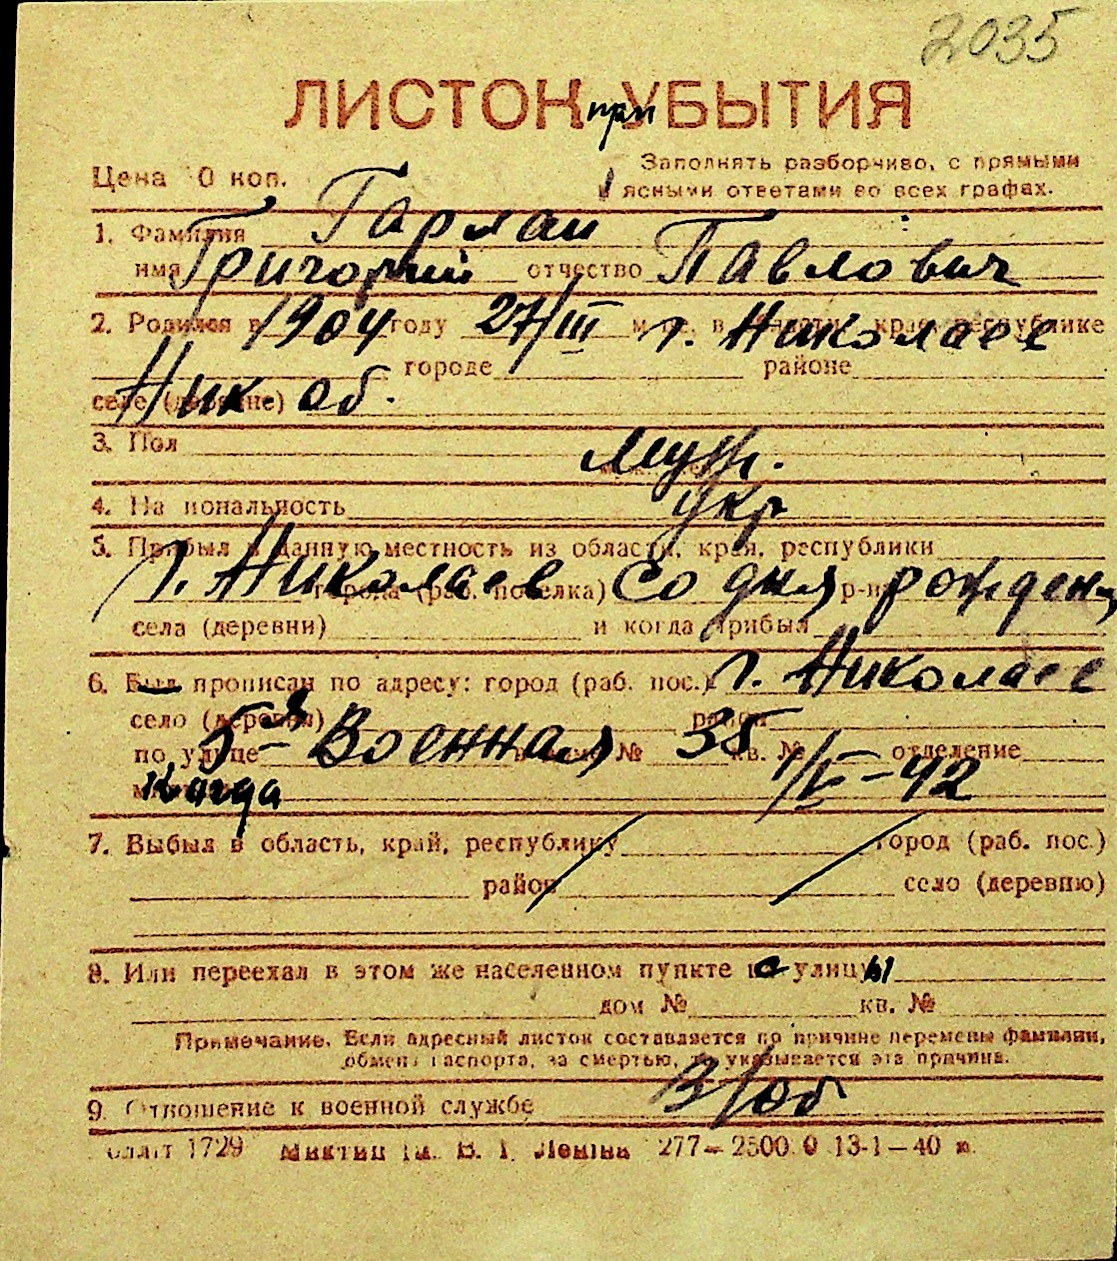 2035
ЛИСТОК при УБЫТИЯ
Цена 0 коп. Заполнять разборчиво, с прямыми
и ясными ответами во всех графах.
1. Фамилия Гарлан
имя Григорий отчество Павлович
2. Родился в 1904 году 27/III м-це, в области, крае, республике г. Николаев
городе районе
селе (деревне) Ник. об.
3. Пол муж.
4. Национальность укр
5. Прибыл в данную местность из области, края, республики
г. Николаев города (раб. поселка) со дня р-на рожден
села (деревни) и когда прибыл
6. Был прописан по адресу: город (раб. пос.) г. Николаев
село (деревня) район
по улице 5-ая Военная в доме № 35 кв. № отделение
когда 1/V-42
7. Выбыл в область, край, республику город (раб. пос.)
район село (деревню)
8. Или переехал в этом же населенном пункте с улицы
дом № кв. №
Примечание. Если адресный листок составляется по причине перемены фамилии,
обмена паспорта, за смертью, то указывается эта причина.
9. Отношение к военной службе в/об
1729 им. В. І. Леніна 277—2500 0 13-1—40